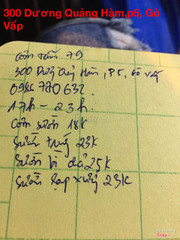 300 Dương Quảng Hàm.p5, Gò Vấp
Cơm Tấm 79
300 Dương Quảng Hàm, P5, Gò Vấp
17h - 23h.
Cơm sườn 18k
Sườn trứng 23k
Sườn bì chả 25k
Sườn lạp xưởng 23k